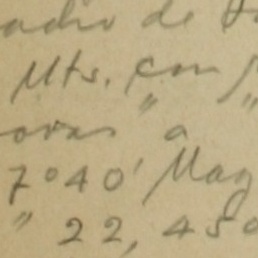 adro de
Mts. con
" "
oras a
7°40' Mag
" 22, 450